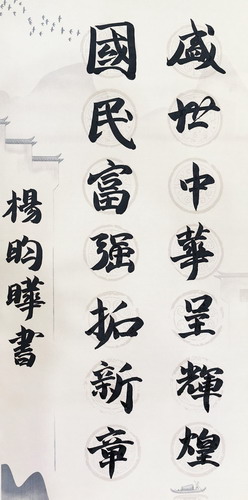 盛世中華呈輝煌
國民富强拓新章
楊昀曄書